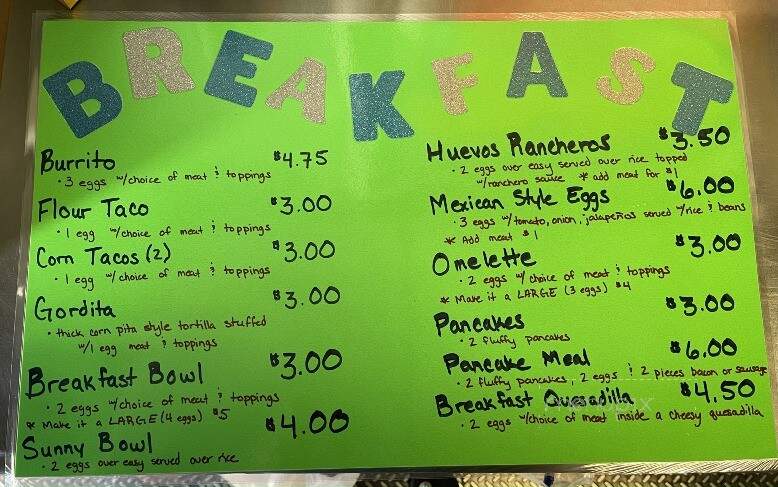 BREAKFAST
Burrito $4.75
• 3 eggs w/choice of meat & toppings
Flour Taco $3.00
• 1 egg w/choice of meat & toppings
Corn Tacos (2) $3.00
• 1 egg w/choice of meat & toppings
Gordita $3.00
• thick corn pita style tortilla stuffed
w/1 egg meat & toppings
Breakfast Bowl $3.00
• 2 eggs w/choice of meat & toppings
* Make it a LARGE (4 eggs) $5
Sunny Bowl $4.00
• 2 eggs over easy served over rice
Huevos Rancheros $3.50
• 2 eggs over easy served over rice topped
w/ranchero sauce * add meat for $1
Mexican Style Eggs $6.00
• 3 eggs w/tomato, onion, jalapeños served w/rice & beans
* Add meat $1
Omelette $3.00
• 2 eggs w/ choice of meat & toppings
* Make it a LARGE (3 eggs) $4
Pancakes $3.00
• 2 fluffy pancakes
Pancake Meal $6.00
• 2 fluffy pancakes, 2 eggs & 2 pieces bacon or sausage
Breakfast Quesadilla $4.50
• 2 eggs w/choice of meat inside a cheesy quesadilla